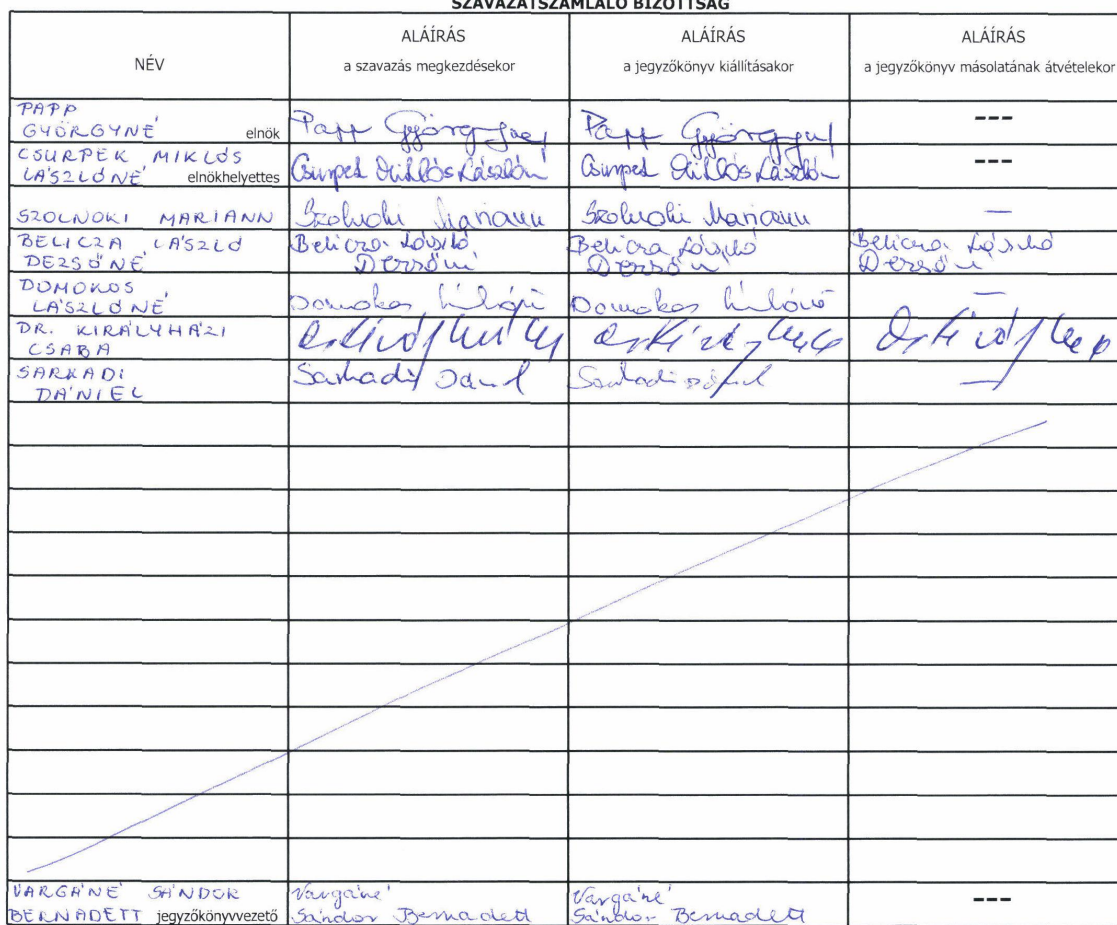 SZAVAZATSZÁMLÁLÓ BIZOTTSÁG
NÉV
ALÁÍRÁS
a szavazás megkezdésekor
ALÁÍRÁS
a jegyzőkönyv kiállításakor
ALÁÍRÁS
a jegyzőkönyv másolatának átvételekor
PAPP
GYÖRGYNÉ elnök Papp Györgyné Papp Györgyné ---
CSURPEK MIKLÓS
LÁSZLÓNÉ elnökhelyettes Csurpek Miklós Lászlóné Csurpek Miklós Lászlóné ---
SZOLNOKI MARIANN Szolnoki Mariann Szolnoki Mariann —
BELICZA LÁSZLÓ Belicza László Belicza László Belicza László
DEZSŐNÉ Dezsőné Dezsőné Dezsőné
DOMOKOS Domokos Domokos —
LÁSZLÓNÉ
DR. KIRÁLYHÁZI
CSABA
SARKADI Sarkadi Dániel Sarkadi Dániel —
DÁNIEL
VARGÁNÉ SÁNDOR Vargáné Vargáné
BERNADETT jegyzőkönyvvezető Sándor Bernadett Sándor Bernadett ---